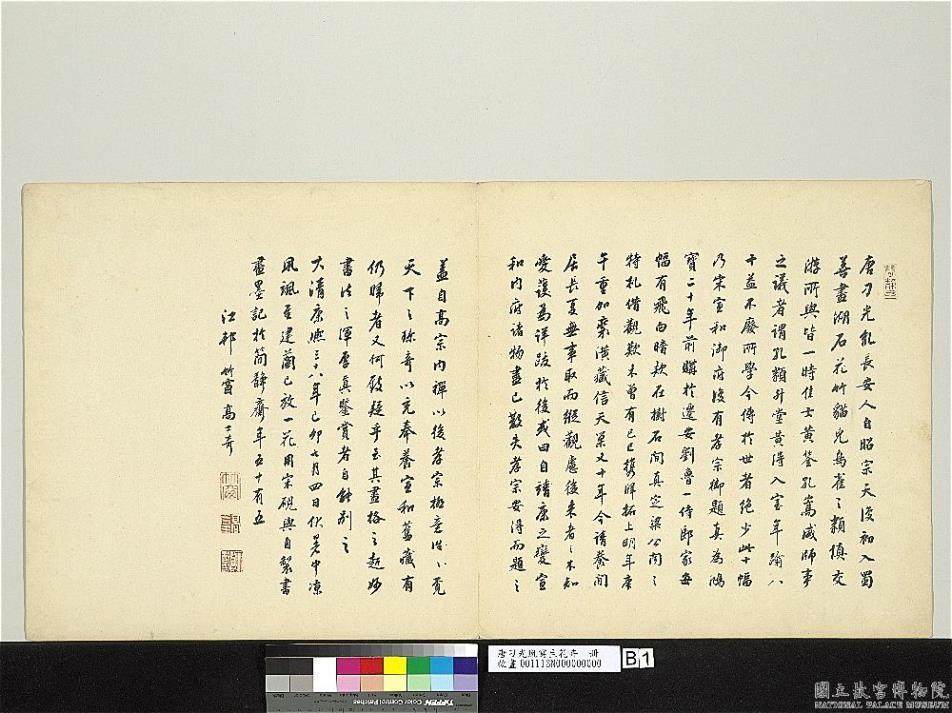 唐刁光胤長安人自昭宗天復初入蜀
善畫湖石花竹貓兔鳥雀之類慎交
游所與皆一時佳士黃筌孔嵩咸師事
之議者謂孔類升堂黃得入室年踰八
十益不廢所學今傳於世者絕少此十幅
乃宋宣和御府後有孝宗御題真為鴻
寶二十年前購於遷安劉魯一侍郎家每
幅有飛白暗款在樹石間真定梁公聞之
特札借觀歎未曾有己巳攜歸柘上明年庚
午重加裝潢藏信天巢又十年今請養閒
居長夏無事取而縱觀慮後來者之不知
愛護為詳跋於後或曰自靖康之變宣
和內府諸物盡已散失孝宗安得而題之
蓋自高宗內禪以後孝宗極意讌
天下之珍奇以充奉養宣和舊藏有
仍歸者又何致疑乎至其畫格之超妙
書法之渾厚真鑒賞者自能別之
大清康熙三十八年己卯七月四日伏暑中涼
風颯至建蘭已放一花用宋硯與自製書
畫墨記於簡靜齋年五十有五
江邨竹窗高士奇
唐刁光胤寫生花卉 冊
故畫001113N000000000
B1
TIFFEN Color Control Patches
國立故宮博物院
NATIONAL PALACE MUSEUM